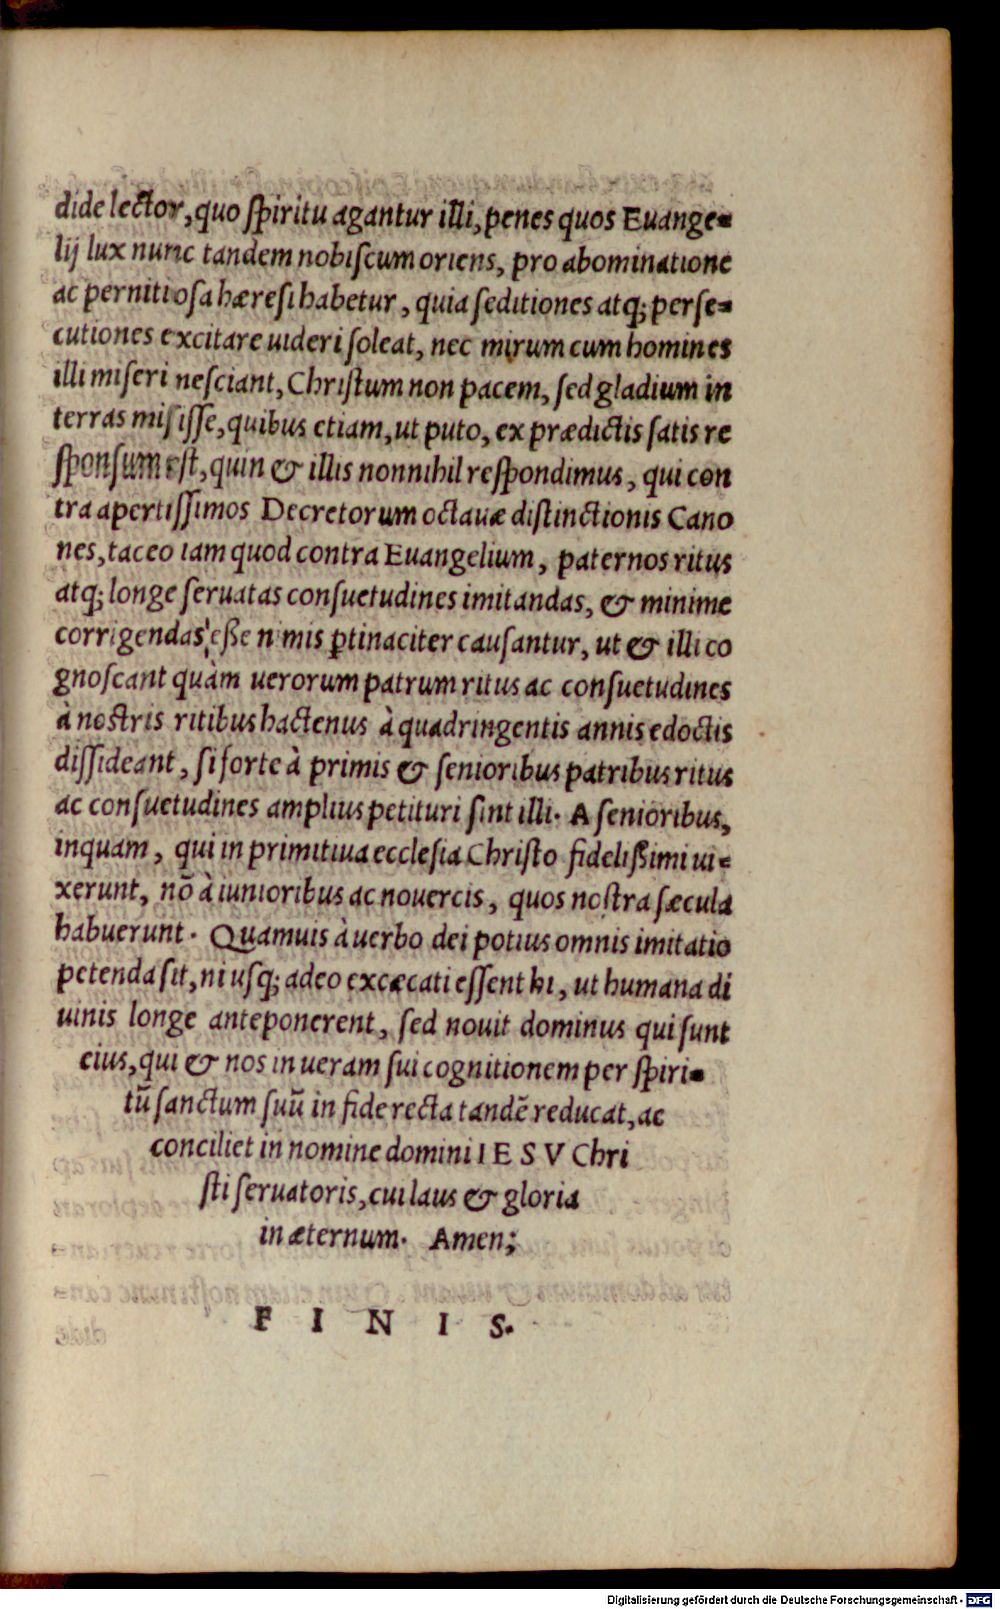 dide lector, quo spiritu agantur illi, penes quos Euange-
lij lux nunc tandem nobiscum oriens, pro abominatione
ac pernitiosa hæresi habetur, quia seditiones atq; perse-
cutiones excitare uideri soleat, nec mirum cum homines
illi miseri nesciant, Christum non pacem, sed gladium in
terras misisse, quibus etiam, ut puto, ex prædictis satis re
sponsum est, quin & illis nonnihil respondimus, qui con
tra apertissimos Decretorum octauæ distinctionis Cano
nes, taceo iam quod contra Euangelium, paternos ritus
atq; longe seruatas consuetudines imitandas, & minime
corrigendas esse nimis ꝑtinaciter causantur, ut & illi co
gnoscant quàm uerorum patrum ritus ac consuetudines
à nostris ritibus hactenus à quadringentis annis edoctis
dissideant, si forte à primis & senioribus patribus ritus
ac consuetudines amplius petituri sint illi. A senioribus,
inquam, qui in primitiua ecclesia Christo fidelissimi ui-
xerunt, nõ à iunioribus ac nouercis, quos nostra sæcula
habuerunt. Quamuis à uerbo dei potius omnis imitatio
petenda sit, ni usq; adeo excæcati essent hi, ut humana di
uinis longe anteponerent, sed nouit dominus qui sunt
eius, qui & nos in ueram sui cognitionem per spiri-
tũ sanctum suũ in fide recta tandẽ reducat, ac
conciliet in nomine domini IESV Chri
sti seruatoris, cui laus & gloria
in æternum. Amen;
F I N I S.
Digitalisierung gefördert durch die Deutsche Forschungsgemeinschaft - DFG